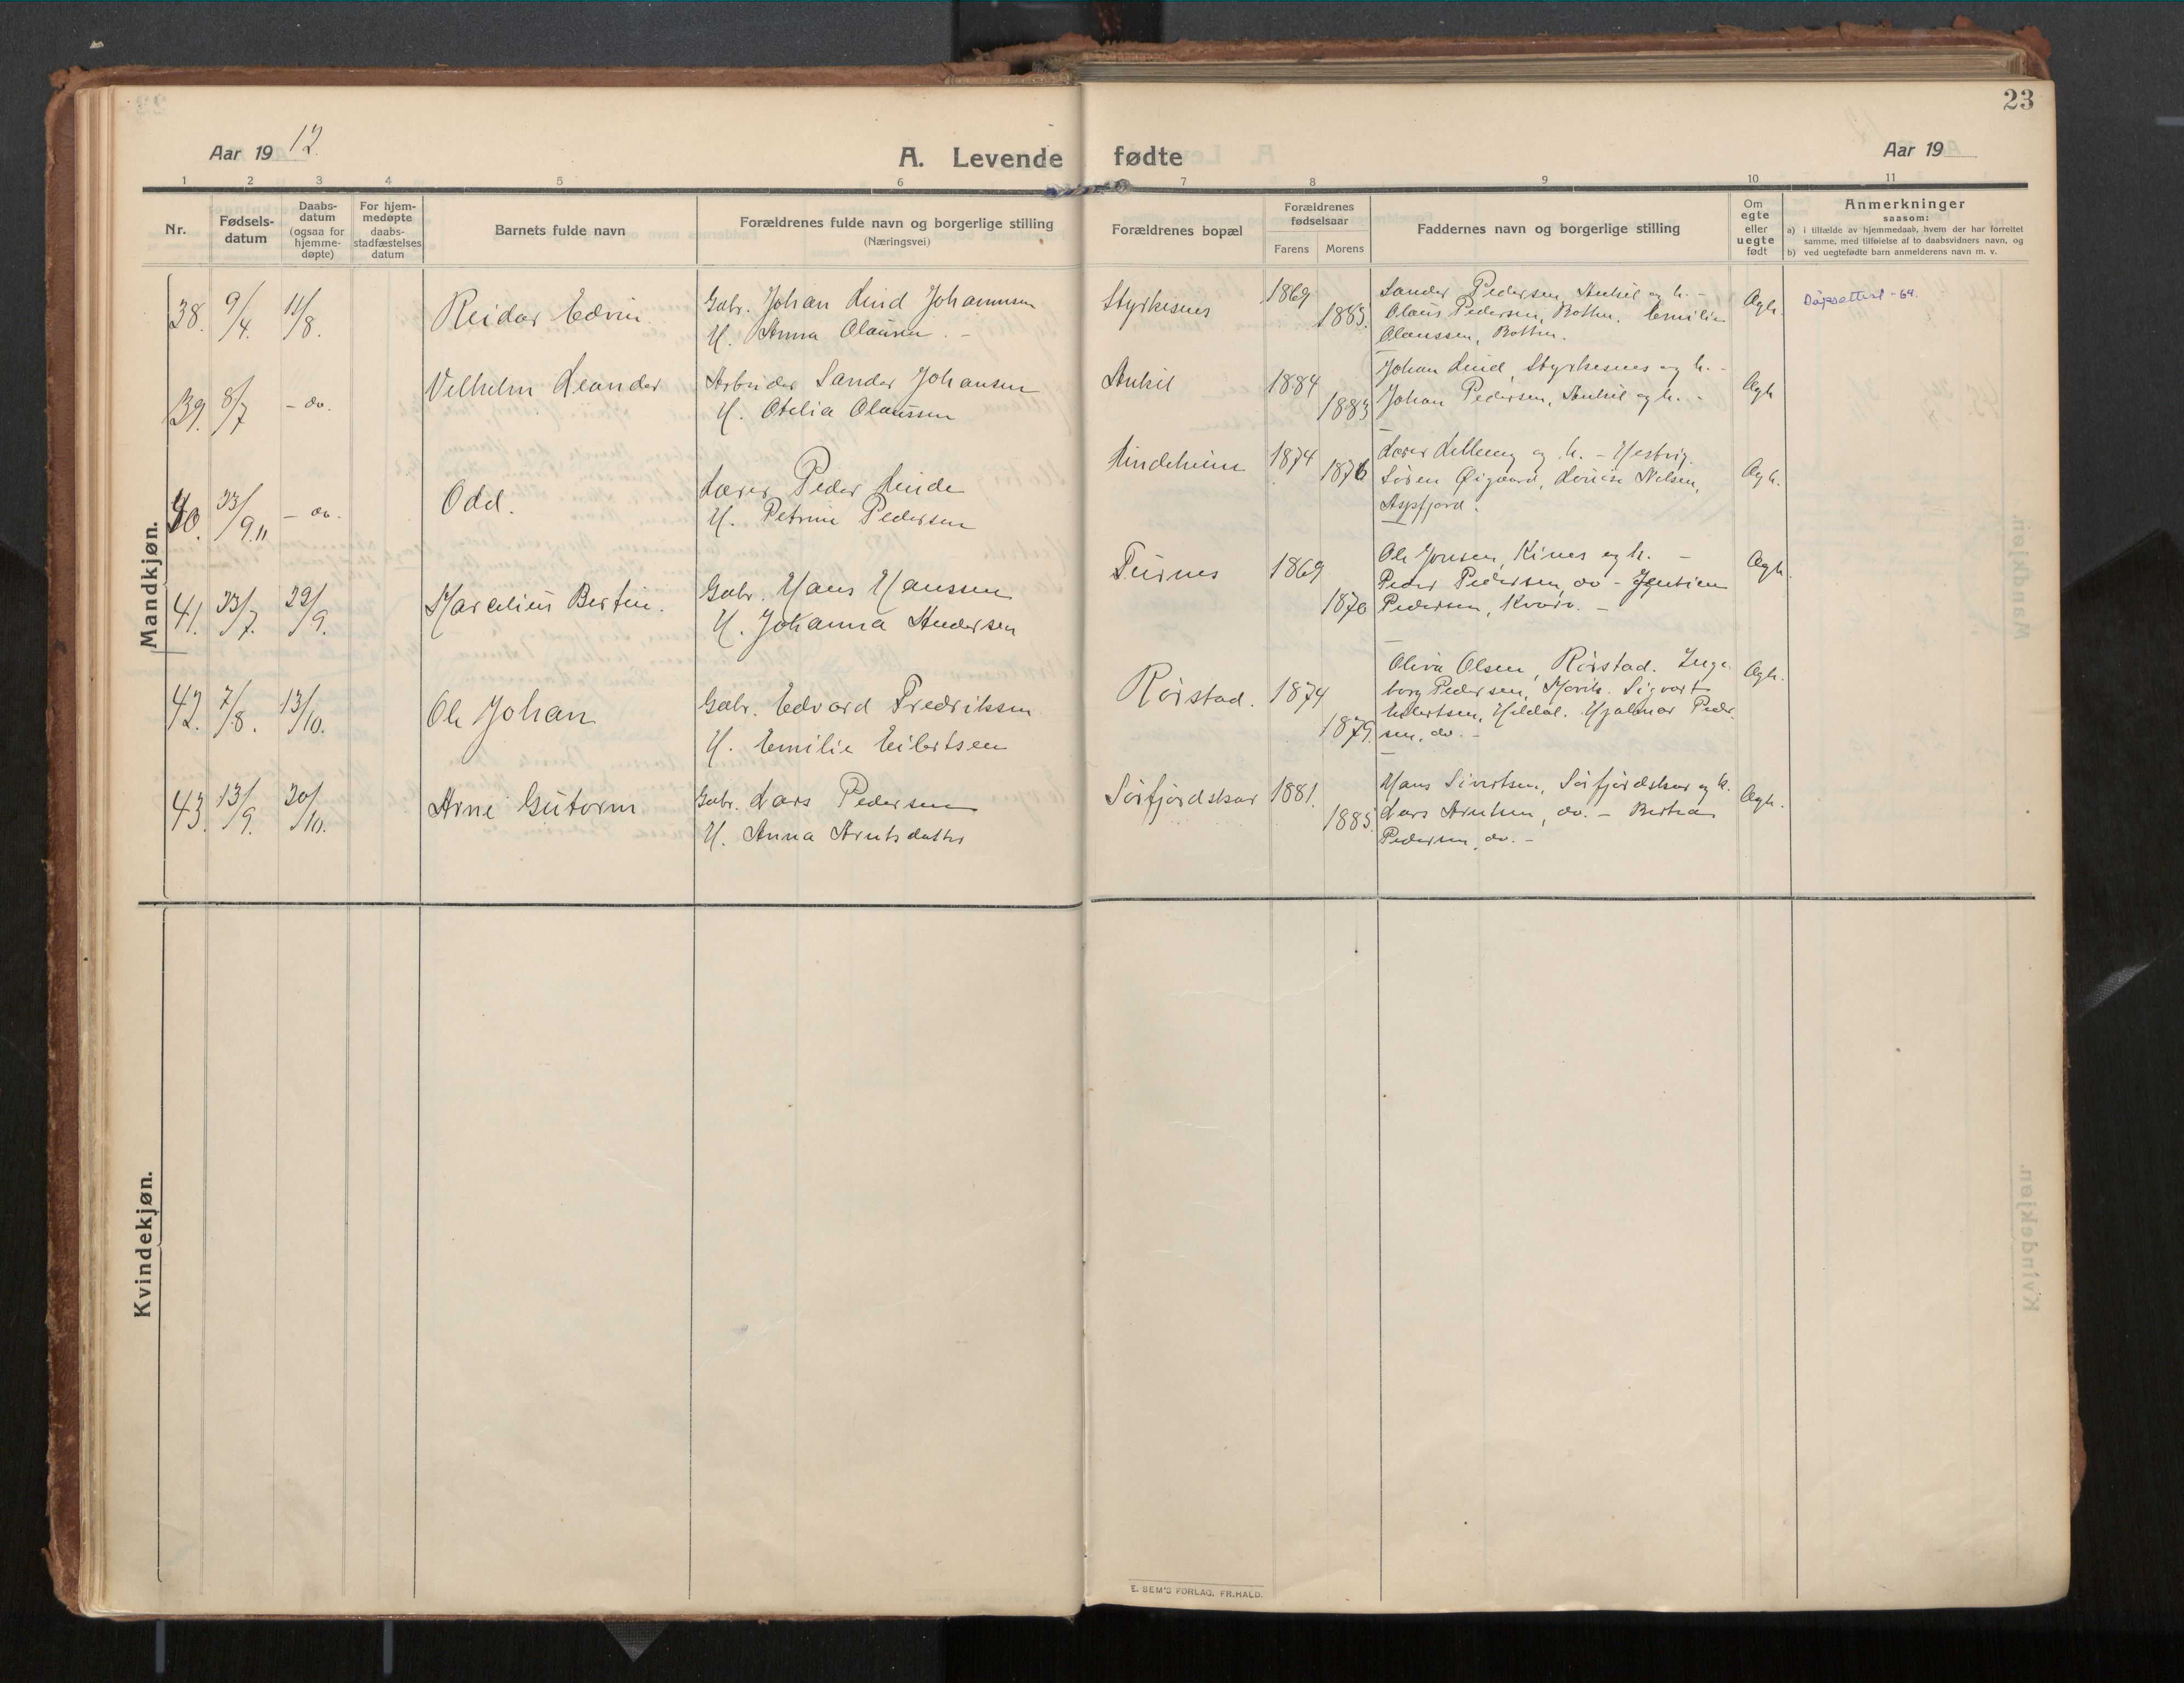 23
Aar 1912.
A. Levende fødte
Aar 19
1 2 3 4 5 6 7 8 9 10 11
Nr.
Fødsels-
datum
Daabs-
datum
(ogsaa for
hjemme-
døpte)
For hjem-
medøpte
daabs-
stadfæstelses
datum
Barnets fulde navn
Forældrenes fulde navn og borgerlige stilling
(Næringsvei)
Forældrenes bopæl
Forældrenes
fødselsaar
Farens Morens
Faddernes navn og borgerlige stilling
Om
egte
eller
uegte
født
Anmerkninger
saasom:
a) i tilfælde av hjemmedaab, hvem der har forrettet
samme, med tilføielse af to daabsvidners navn, og
b) ved uegtefødte barn anmelderens navn m. v.
Mandkjøn.
38. 9/4. 11/8. Reidar Edvin.
Gabr. Johan Lind Johannsen
H. Anna Olausen. -
Styrkesnes 1869 1883.
Sander Pedersen, Ankil og h. -
Olaus Pedersen, Botten. Emilie
Olaussen, Botten.
Ægh.
Dåpsattest - 64.
39. 8/7 - do. Vilhelm Leander
Arbeider Sander Johansen
H. Otelia Olaussen
Ankil 1884 1883
Johan Lind, Styrkesnes og h. -
Johan Pedersen, Ankil og h. -
Ægh
40. 23/9.11 - do. Odd.
Lærer Peder Linde
H. Petrine Pedersen
Lindeheim 1874 1876
Lærer og h. -
Søren Øigaard, Lovise Nilsen,
Aspfjord.
Ægh.
41. 23/7. 29/9. Marcelius Bertin.
Gabr. Hans Hanssen
H. Johanna Andersen
1869 1870
Ole Jonsen, Kines og h. -
Peder Pedersen, do - Jentine
Pedersen, Kvarv. -
Ægh.
42. 7/8. 13/10. Ole Johan
Gabr. Edvard Fredriksen
H. Emilie Eilertsen
Rørstad. 1874 1879.
Oliva Olsen, Rørstad. Inge-
borg Pedersen, Movik. Sigvart
Eilertsen, Hildal. Hjalmar Peder-
sen, do. -
Ægh.
43. 13/9. 20/10. Arne Gutorm
Gabr. Lars Pedersen
H. Anna Arntsdatter
Sørfjordskar 1881. 1885.
Hans Sivertsen, Sørfjordskar og h.
Lars Arntsen, do. - Bertea
Pedersen, do. -
Ægh.
Kvindekjøn.
E. SEM'S FORLAG, FR.HALD.